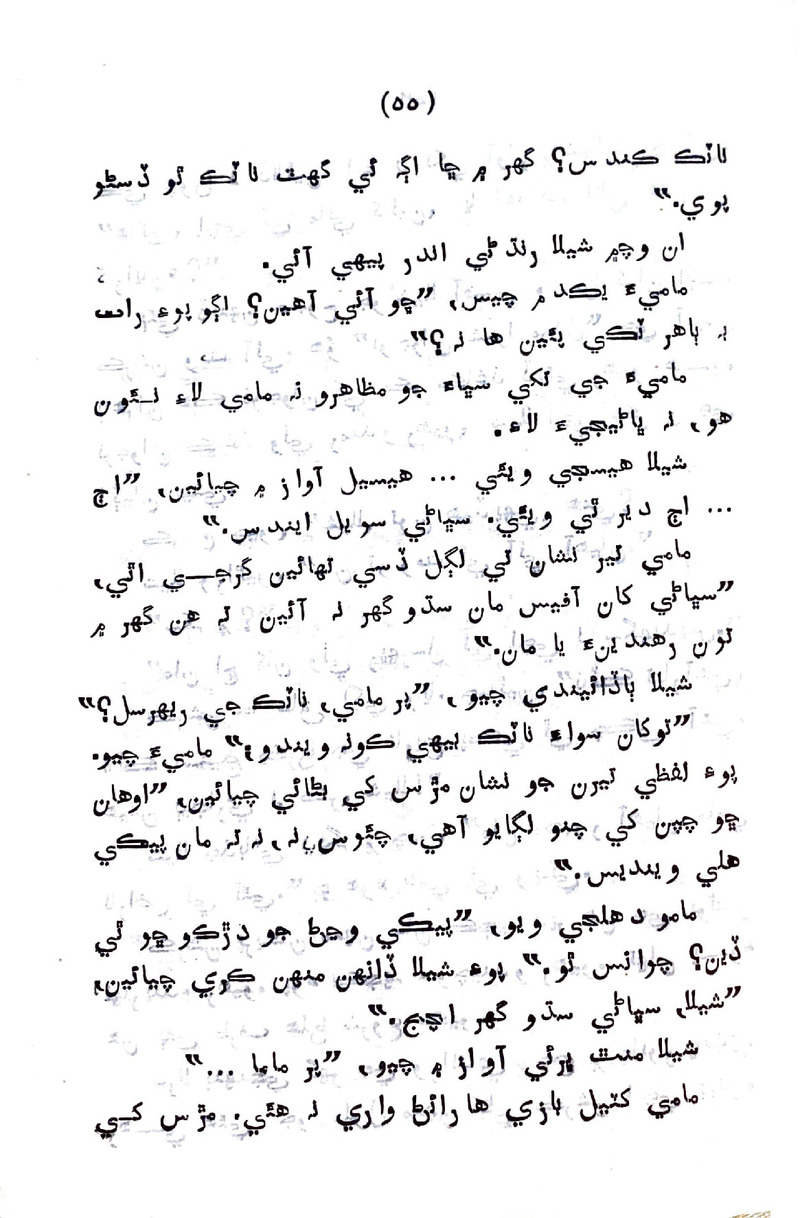 (٥٥)
ناٽڪ ڪندس؟ گهر ۾ ڇا اڳ ئي گهٽ ناٽڪ ٿو ڏسڻو
پوي.“
ان وچ۾ شيلا رنڌڻي اندر پيهي آئي.
ماميءَ يڪدم چيس، ”ڇو آئي آهين؟ اڳو پوءِ رات
به ٻاهر ٽڪي پئين ها نه؟“
ماميءَ جي تکي سڀاءَ جو مظاهرو نه مامي لاءِ نئون
هو، نه ڀاڻيجيءَ لاءِ.
شيلا هيسجي ويئي ... هيسيل آواز ۾ چيائين، ”اڄ
... اڄ دير ٿي ويئي. سڀاڻي سويل ايندس.“
مامي تير نشان تي لڳل ڏسي تهائين گرجي اٿي،
”سڀاڻي کان آفيس مان سڌو گهر نه آئين ته هن گهر ۾
تون رهندينءَ يا مان.“
شيلا ٻاڏائيندي چيو، ”پر مامي، ناٽڪ جي ريهرسل؟“
”توکان سواءِ ناٽڪ بيهي ڪونه ويندو؛“ ماميءَ چيو.
پوءِ لفظي تيرن جو نشان مڙس کي بڻائي چيائين، ”اوهان
ڇو چپن کي چنو لڳايو آهي، چئوس نه، نه ته مان پيڪي
هلي وينديس.“
مامو دهلجي ويو، ”پيڪي وڃڻ جو دڙڪو ڇو ٿي
ڏين؟ چوانس ٿو.“ پوءِ شيلا ڏانهن منهن ڪري چيائين،
”شيلا، سڀاڻي سڌو گهر اچج.“
شيلا منٿ ڀرئي آواز ۾ چيو، ”پر ماما ...“
مامي کٽيل بازي هارائڻ واري نه هئي. مڙس کي